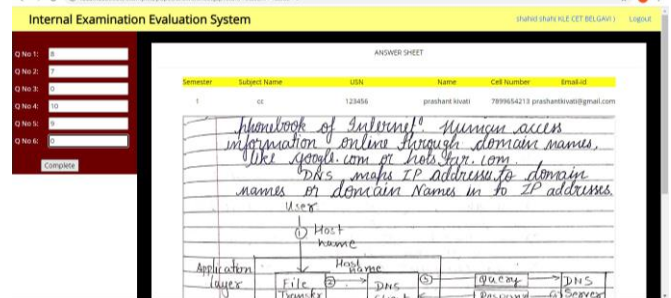 Internal Examination Evaluation System
shahid shahi KLE CET BELGAVI ) Logout
ANSWER SHEET
Q No 1: 8
Q No 2: 7
Q No 3: 0
Q No 4: 10
Q No 5: 9
Q No 6: 0
Complete
Semester Subject Name USN Name Cell Number Email-id
1 cc 123456 prashant kivati 7899654213 prashantkivati@gmail.com
phonebook of Internet". Human access
information online through domain names,
like google.com or hotstar.com.
DNS maps IP address to domain
names or domain Names in to IP addresses.
User
① Host
name
Host
name
Application
layer
File
Transfer
② DNS
⑤ Query
DNS
Server